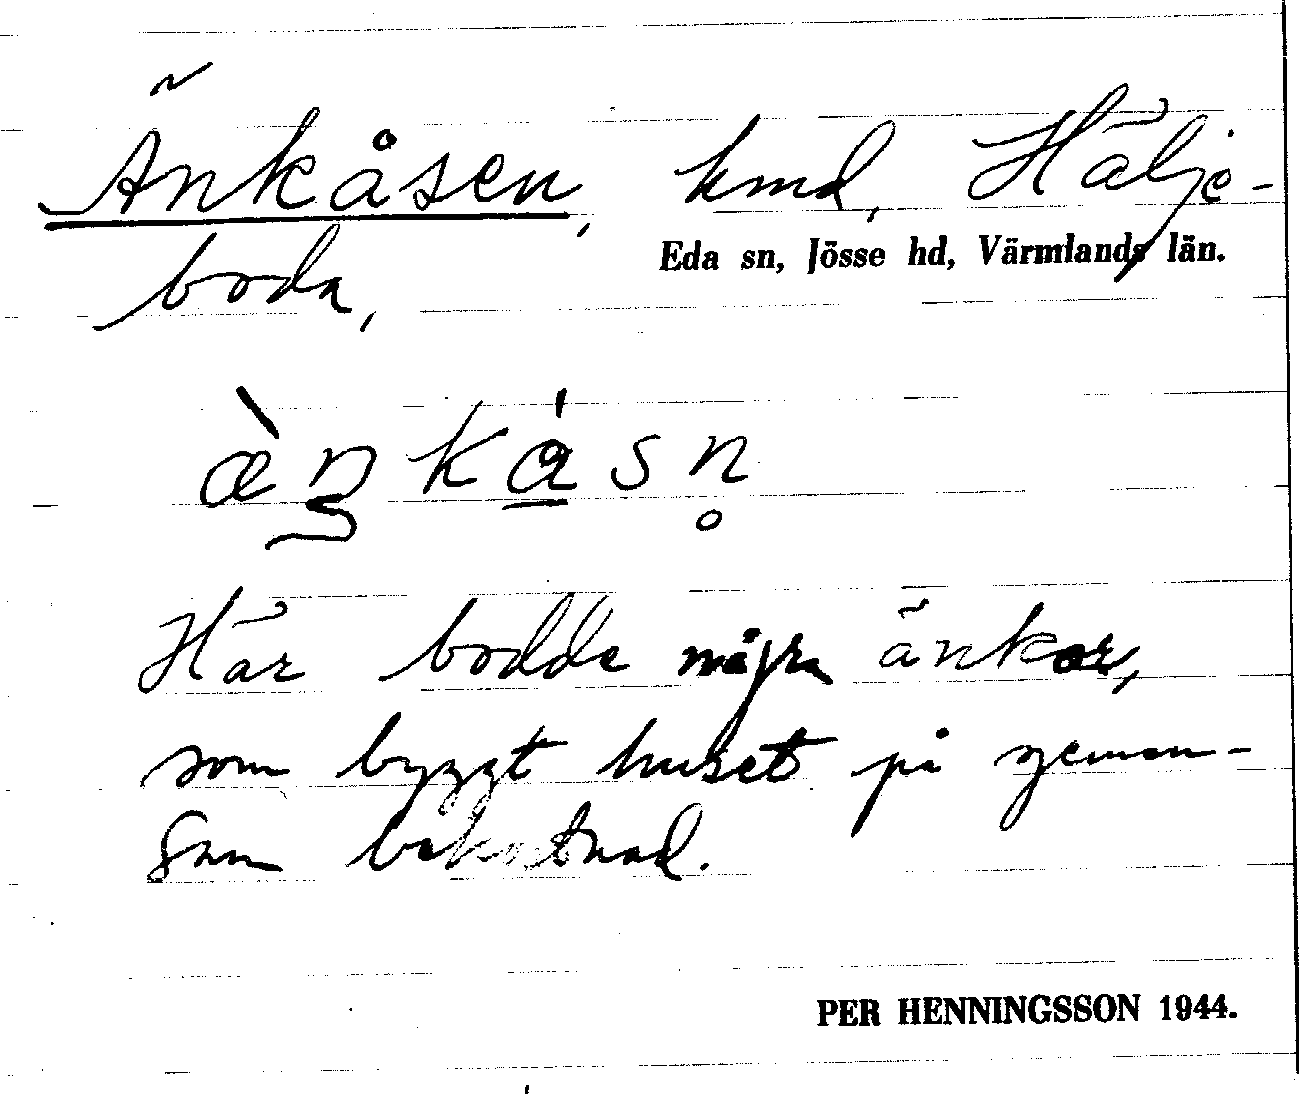 Änkåsen, hmd, Hälje-
Eda sn, Jösse hd, Värmlands län.
boda,
æ̀ŋkåsn̥
Här bodde några änkor,
som byggt huset på gemen-
sam bekostnad.
PER HENNINGSSON 1944.